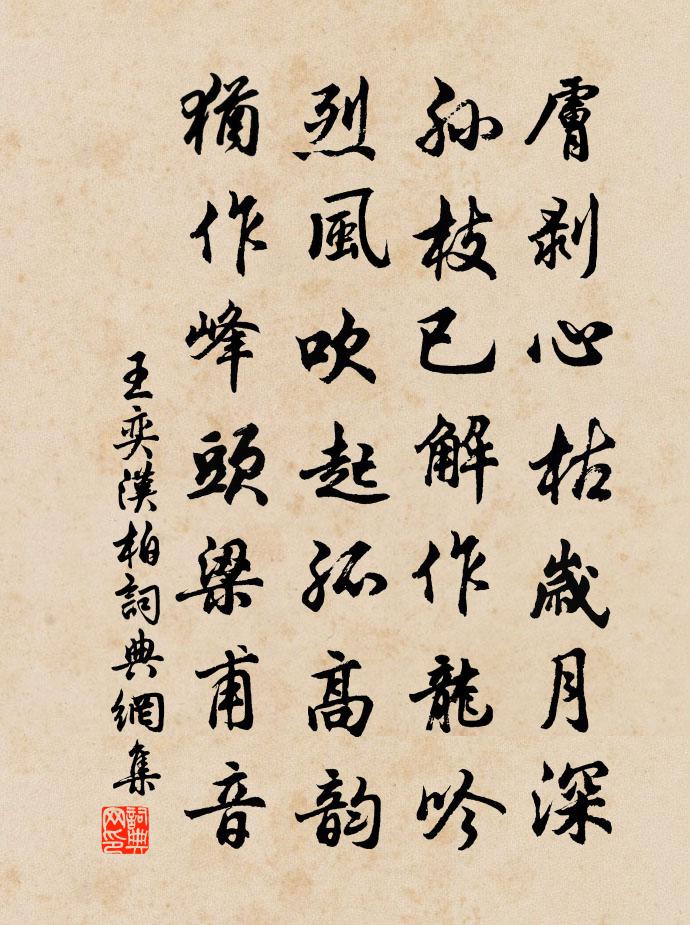 膚剥心枯歲月深
孫枝已解作龍吟
烈風吹起孤高韵
猶作峰頭梁甫音
王奕漢柏詞典網集
詞典网印